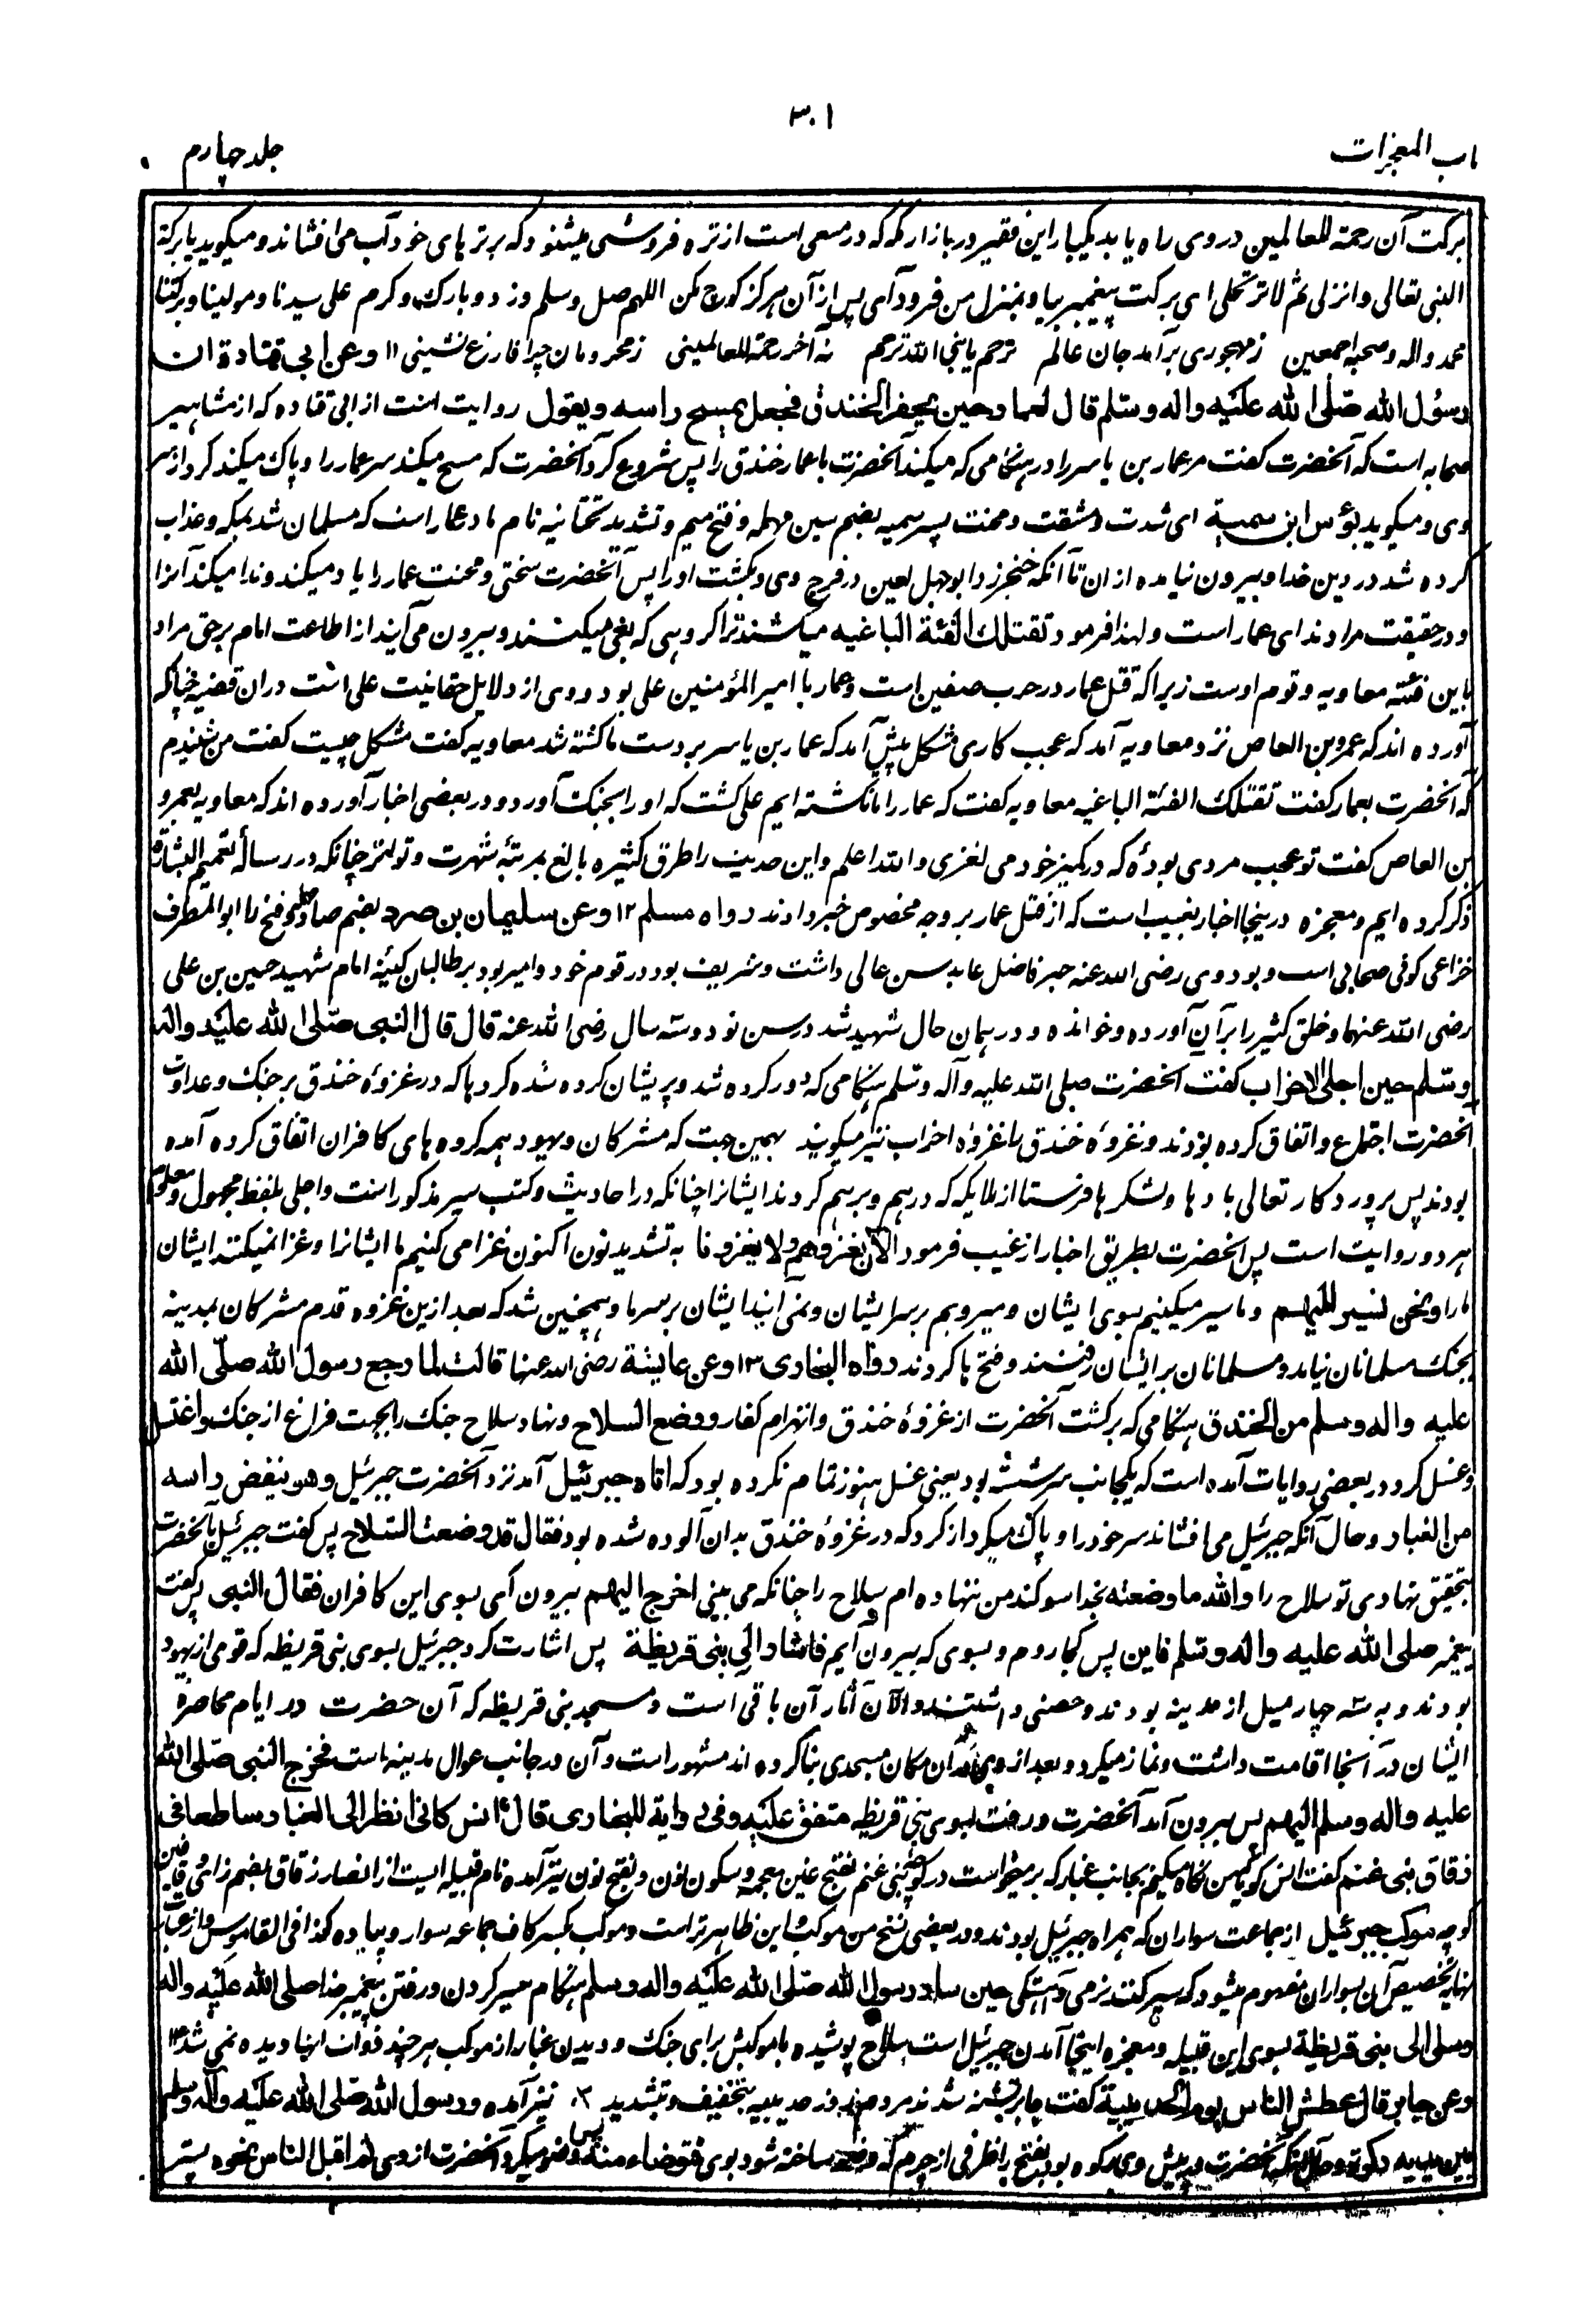 ٣٠١
باب المعجزات
جلد چهارم
برکت آن رحمة للعالمین در وی راه یابد یکبار این فقیر در بازار مکه که در مسعی است از تره فروشی میشنود که بر تره‌های خود آب می‌افشاند و میکوید یا برکة
النبی تعالی وانزلی ثم لا ترتحلی ای برکت پیغمبر بیا و بمنزل من فرود آی پس از آن هرکز کوچ مکن اللهم صل وسلم وزد وبارک وکرم علی سیدنا ومولینا وبرکتنا
محمد واله وصحبه اجمعین زمهجوری برآمد جان عالم ترحم یا نبی الله ترحم نه آخر رحمة للعالمینی زمحرومان چرا فارغ نشینی ١١ وعن ابی قتادة ان
رسول الله صلی الله علیه واله وسلم قال لعمار حین یحفر الخندق فجعل یمسح راسه ویقول روایت است از ابی قتاده که از مشاهیر
صحابه است که آنحضرت کفت مر عمار بن یاسر را در هنکامی که میکند آنحضرت با عمار خندق را پس شروع کرد آنحضرت که مسح میکند سر عمار را و پاک میکند کرد از سر
وی و میکوید بؤس ابن سمیة ای شدت و مشقت و محنت پسر سمیه بضم سین مهمله و فتح میم و تشدید تحتانیه نام مادر عمار است که مسلمان شد بمکه و عذاب
کرده شد در دین خدا و بیرون نیامده از ان تا آنکه خنجر زد ابوجهل لعین در فرج وی و بکشت او را پس آنحضرت سختی و محنت عمار را یاد میکند و ندا میکند آنرا
و در حقیقت مراد ندای عمار است ولهذا فرمود تقتلک الفئة الباغیه میکشند ترا کروهی که بغی میکنند و بیرون می‌آیند از اطاعت امام بر حق مراد
باین فئته معاویه و قوم اوست زیرا که قتل عمار در حرب صفین است و عمار با امیر المؤمنین علی بود و وی از دلایل حقانیت علی است دران قضیه چنانکه
آورده اند که عمرو بن العاص نزد معاویه آمد که عجب کاری مشکل پیش آمد که عمار بن یاسر بر دست ما کشته شد معاویه کفت مشکل چیست کفت من شنیدم
که آنحضرت بعمار کفت تقتلک الفئة الباغیه معاویه کفت که عمار را ما نکشته ایم علی کشت که او را بجنک آورد و در بعضی اخبار آورده اند که معاویه بعمرو
بن العاص کفت تو عجب مردی بوده که در کمیز خود می لغزی والله اعلم و این حدیث را طرق کثیره بالغ بمرتبه شهرت و تواتر چنانکه در رساله تعمیم البشارة
ذکر کرده ایم و معجزه درینجا اخبار بغیب است که از قتل عمار بر وجه مخصوص خبر دادند رواه مسلم ١٢ وعن سلیمان بن صرد بضم صاد مهمله و فتح را ابو المطرف
خزاعی کوفی صحابی است و بود وی رضی الله عنه حبر فاضل عابد سن عالی داشت و شریف بود در قوم خود و امیر بود بر طالبان کینه امام شهید حسین بن علی
رضی الله عنهما و خلق کثیر را بر آن آورده و خوانده و در همان حال شهید شد در سن نود و سه سال رضی الله عنه قال قال النبی صلی الله علیه واله
وسلم حین اجلی الاحزاب کفت آنحضرت صلی الله علیه وآله وسلم هنکامی که دور کرده شد و پریشان کرده شده کرد ها که در غزوه خندق بر جنک و عداوت
آنحضرت اجتماع و اتفاق کرده بودند و غزوه خندق را غزوه احزاب نیز میکویند بهمین جهت که مشرکان و یهود همه کروه های کافران اتفاق کرده آمده
بودند پس پروردکار تعالی بادها و لشکرها فرستاد از ملایکه که درهم و برهم کردند ایشانرا چنانکه در احادیث و کتب سیر مذکور است واجلی بلفظ مجهول و معلوم
هر دو روایت است پس آنحضرت بطریق اخبار از غیب فرمود الآن نغزوهم ولا یغزونا به تشدید نون اکنون غزا می کنیم ما ایشانرا و غزا نمیکنند ایشان
مارا ونحن نسیر الیهم و ما سیر میکنیم بسوی ایشان و میرویم بر سر ایشان و نمی آیند ایشان بر سر ما و همچنین شد که بعد ازین غزوه قدم مشرکان بمدینه
بجنک مسلمانان نیامد و مسلمانان بر ایشان رفتند و فتح ها کردند رواه البخاری ١٣ وعن عایشة رضی الله عنها قالت لما رجع رسول الله صلی الله
علیه واله وسلم من الخندق هنکامی که برکشت آنحضرت از غزوه خندق و انهزام کفار ووضع السلاح و نهاد سلاح جنک را بجهت فراغ از جنک واغتسل
و غسل کرد در بعضی روایات آمده است که یکجانب سر شسته بود یعنی غسل هنوز تمام نکرده بود که اتاه جبرئیل آمد نزد آنحضرت جبرئیل وهو ینفض راسه
من الغبار و حال آنکه جبرئیل می افشاند سر خود را و پاک میکرد از کرد که در غزوه خندق بدان آلوده شده بود فقال قد وضعت السلاح پس کفت جبرئیل بآنحضرت
بتحقیق نهادی تو سلاح را والله ما وضعته بخدا سوکند من ننهاده ام سلاح را چنانکه می بینی اخرج الیهم بیرون آی بسوی این کافران فقال النبی پس کفت
پیغمبر صلی الله علیه واله وسلم فاین پس کجا روم و بسوی که بیرون آیم فاشار الی بنی قریظة پس اشارت کرد جبرئیل بسوی بنی قریظه که قومی از یهود
بودند و به سه چهار میل از مدینه بودند و حصنی داشتند و الآن آثار آن باقی است و مسجد بنی قریظه که آن حضرت در ایام محاصرۀ
ایشان در آنجا اقامت داشت و نماز میکرد و بعد از وی دران مکان مسجدی بنا کرده اند مشهور است و آن در جانب عوالی مدینه است فخرج النبی صلی الله
علیه واله وسلم الیهم پس بیرون آمد آنحضرت و رفت بسوی بنی قریظه متفق علیه وفی روایة للبخاری قال انس کانی انظر الی الغبار ساطعا فی
زقاق بنی غنم کفت انس کویا من نکاه میکنم بجانب غبار که بر میخواست در کوچه بنی غنم بفتح غین معجمه و سکون نون و بفتح نون نیز آمده نام قبیله ایست از انصار زقاق بضم زا وقافین
کوچه موکب جبرئیل از جماعت سواران که همراه جبرئیل بودند و در بعضی نسخ من موکب و این ظاهر تر است و موکب بکسر کاف جماعه سوار و پیاده کذا فی القاموس و از عبارت
نهایه تخصیص آن بسواران مفهوم میشود که سیر کنند بنرمی و آهستکی حین سار رسول الله صلی الله علیه واله وسلم هنکام سیر کردن و رفتن پیغمبر خدا صلی الله علیه واله
وسلم الی بنی قریظة بسوی این قبیله و معجزه اینجا آمدن جبرئیل است سلاح پوشیده با موکبش برای جنک و دیدن غبار از موکب هر چند ذوات انها دیده نمی شد ١٤
وعن جابر قال عطش الناس یوم الحدیبیة کفت جابر تشنه شدند مردم در روز حدیبیه بتخفیف و تشدید نیز آمده ورسول الله صلی الله علیه واله وسلم
بین یدیه رکوة و حال آنکه آنحضرت در پیش وی رکوه بود بفتح را ظرفی از چرم که ساخته شود بوی فتوضاء منها پس وضو میکرد آنحضرت از وی ثم اقبل الناس نحوه پستر